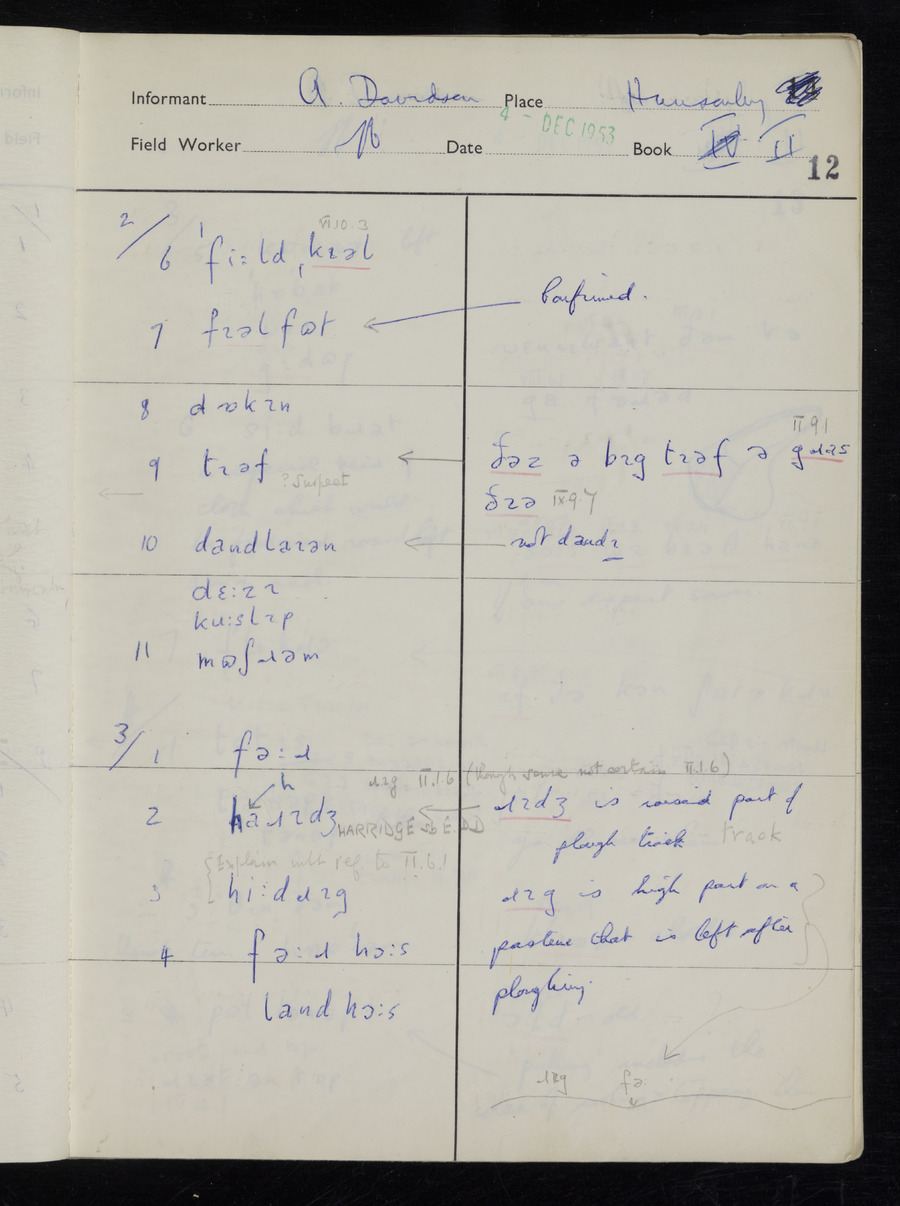 Informant A. Davidson Place Hunsonby
4 - DEC 1953
Field Worker Date Book II
12
2/
VI.10.3
6 ˈfiːld ˌkɪəl
Confirmed.
7 fɪəlfɒt
8 dɒkɪn
II 9 1
9 tɪəf ðəz ə bɪg tɪəf ə gɹɪs
? Suspect
ðɪə IX.9.7
10 dandlaɪən not dandɪ
dɛːzɪ
kuːslɪp
11 mɒʃɹəm
3/ 1 fəːɹ
h
ɹɪg II.1.6 (though sense not certain II.1.6)
2 haɹɪdʒ ɹɪdʒ is raised part of
HARRIDGE sb E.D.D
plough track track
Explain with ref. to II.6.1
3 hiːdɹɪg ɹɪg is high part on a
4 fəːɹ hɔːs pasture that is left after
landhɔːs ploughing.
ɹɪg fə